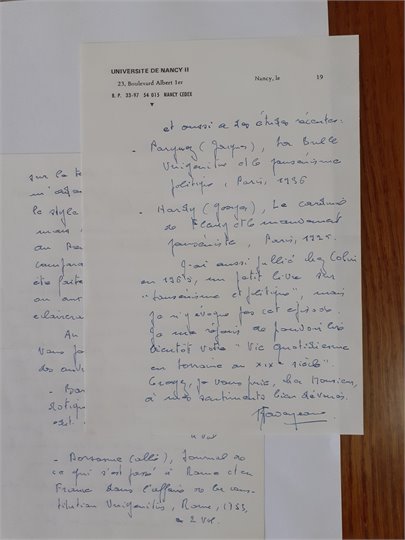 UNIVERSITE DE NANCY II
23, Boulevard Albert 1er
B. P. 33-97 54 015 NANCY CEDEX
Nancy, le 19
et aussi à des études récentes:
- Parguez (Jacques), La Bulle
Unigenitus et le jansénisme
politique, Paris, 1936
- Hardy (Georges), Le cardinal
de Fleury et le mouvement
janséniste, Paris, 1925.
J'ai aussi publié chez Colin
en 1965, un petit livre sur
"Jansénisme et politique", mais
je n'y évoque pas cet épisode.
Je me réjouis de pouvoir lire
bientôt votre "Vie quotidienne
en Lorraine au XIXe siècle".
Croyez, je vous prie, cher Monsieur,
à mes sentiments bien dévoués.
sur la
le style
mais
au
on
Au
vous
des
2 vol
- Dorsanne (abbé), Journal de
ce qui s'est passé à Rome et en
France dans l'affaire de la cons-
titution Unigenitus, Rome, 1753,
2 vol.